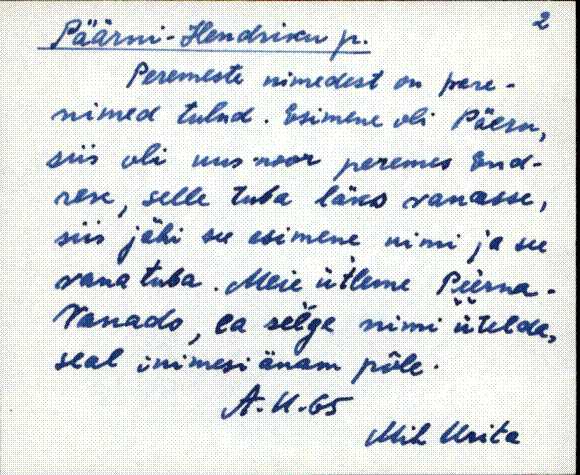 2
Päärni-Hendriku p.
Peremeste nimedest on pere-
nimed tulnd. Esimene oli Päern,
siis oli uus noor peremes End-
rek, selle tuba läks vanasse,
siis jähi su esimene nimi ja su
vana tuba. Meie ütleme Peerna-
Vanado, ea selge nimi ütelda,
seal inimesi änam põle.
Mih